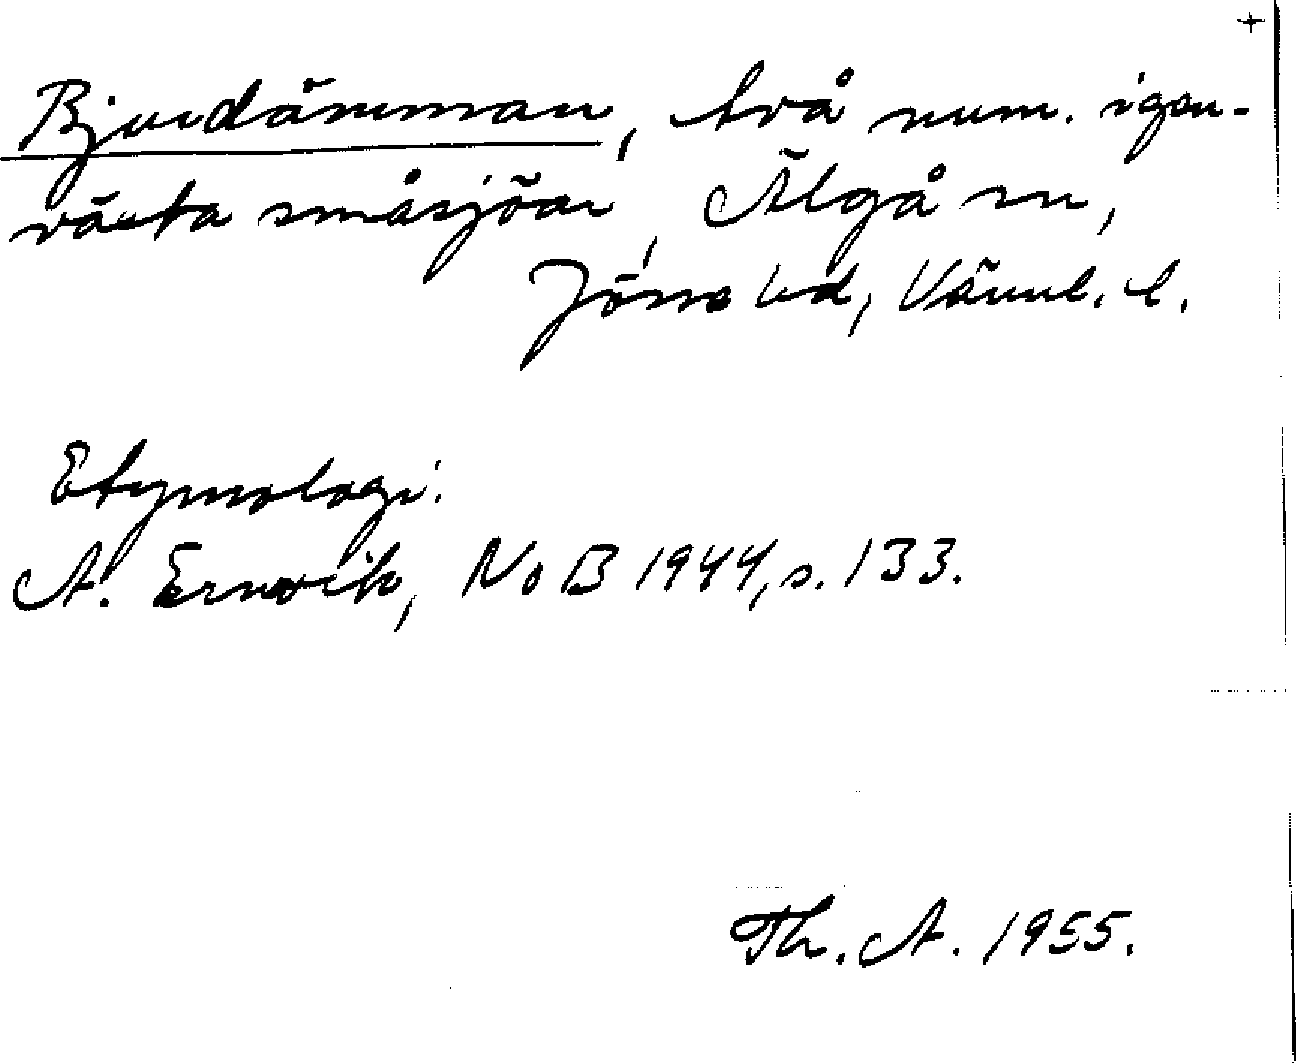 +
Bjurdämman, två num. igen-
växta småsjöar, Älgå sn,
Jösse hd, Värml. l.
Etymologi:
A. Ernvik, NoB 1944, s. 133.
Th. A. 1955.